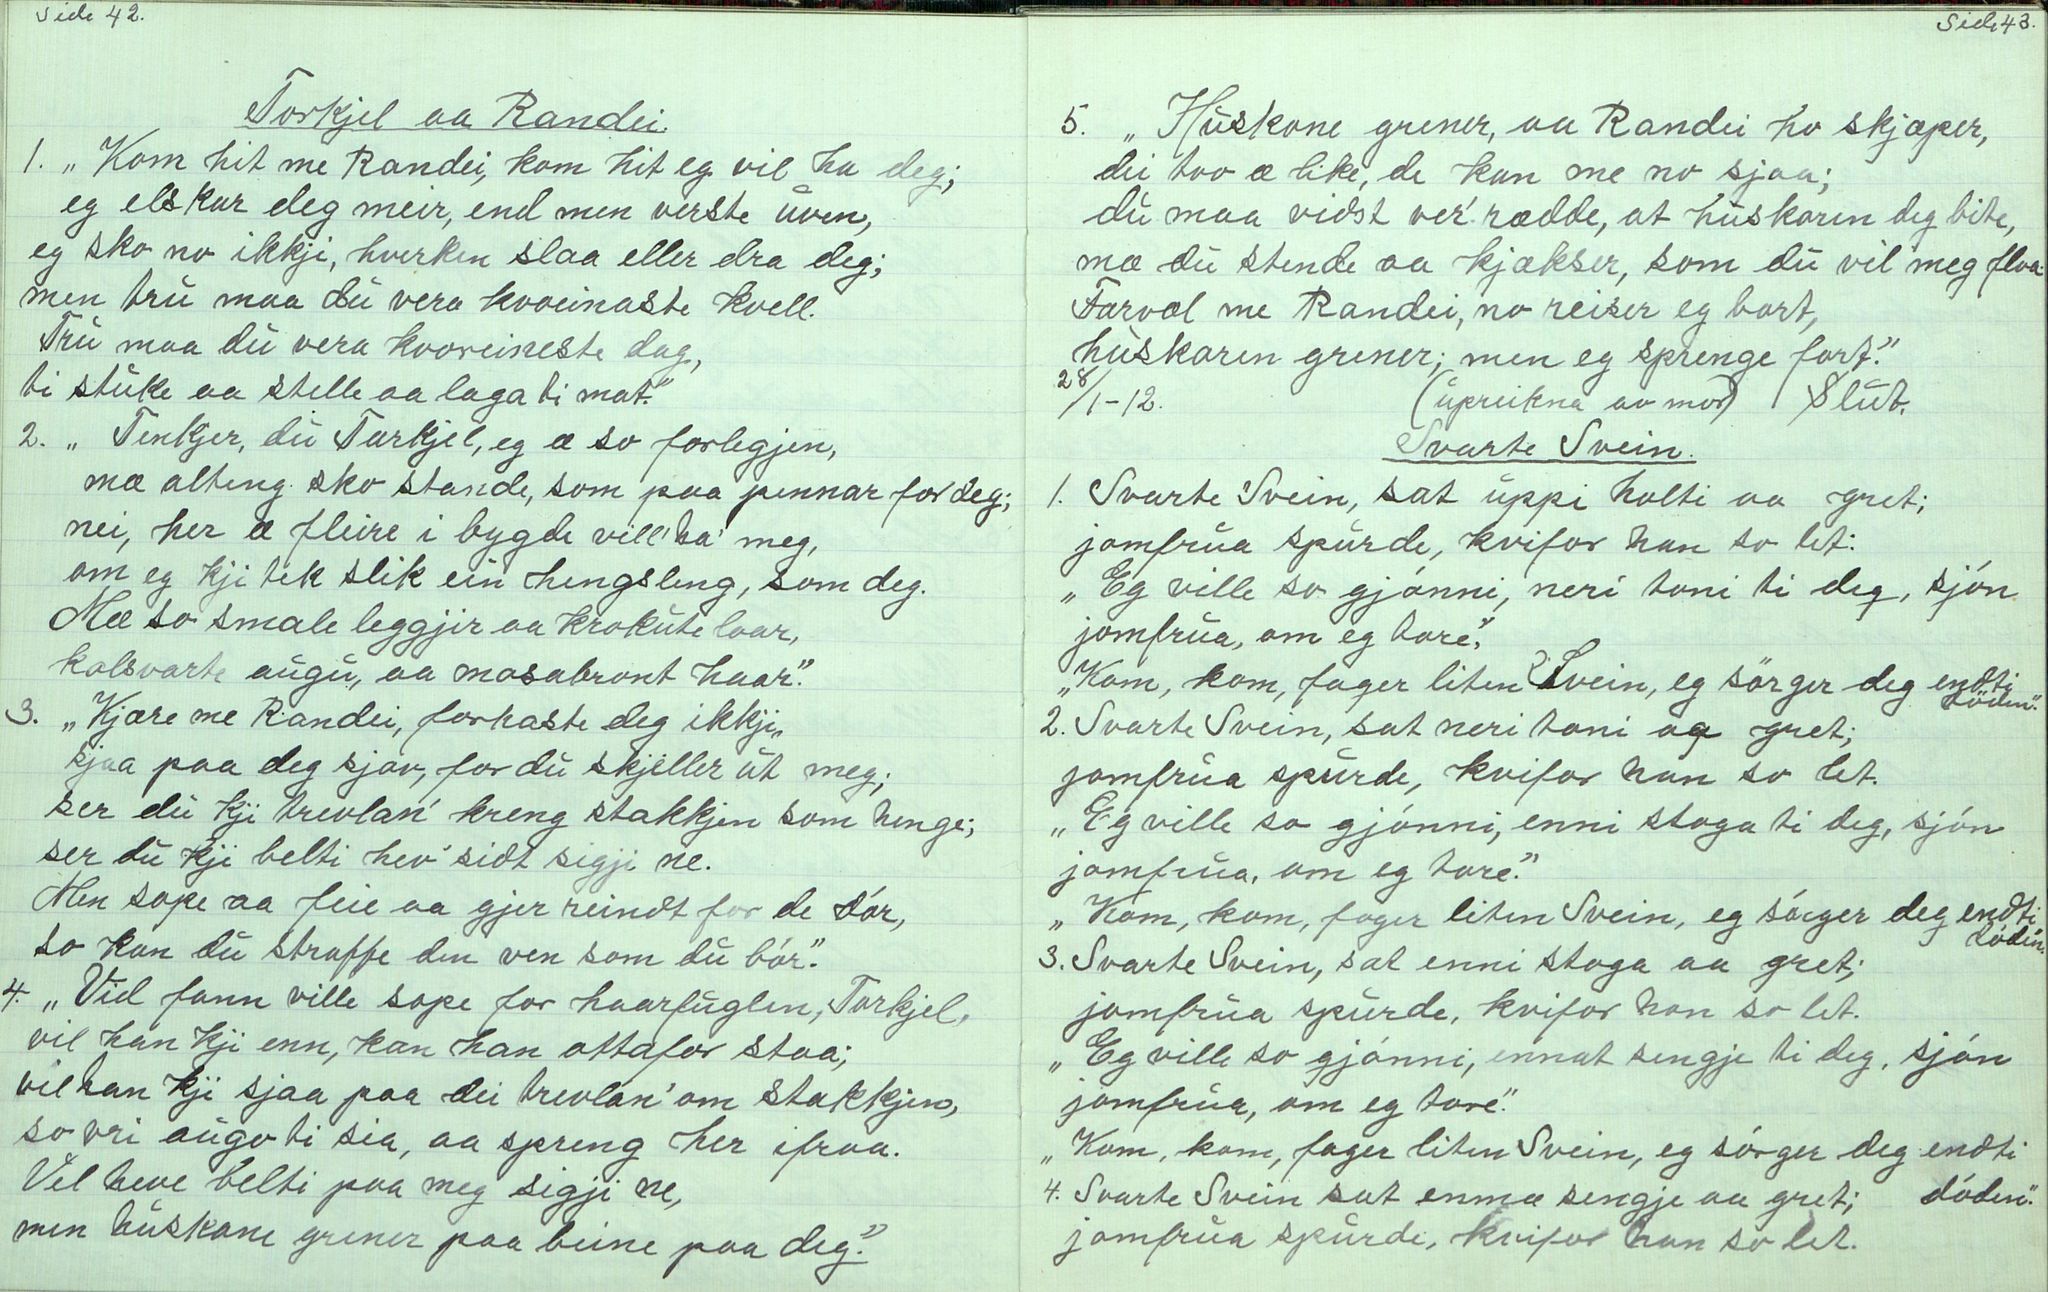 Side 42.
Torkjel aa Randei.
1. „Kom hit me Randei, kom hit eg vil ha deg;
eg elskar deg meir, end men verste úven,
eg sko no ikkji, hverken slaa eller dra deg;
men trú maa dú vera kvoreinaste kvell.
Trú maa dú vera kvoreineste dag,
ti stúke aa stelle aa laga ti mat."
2. „Tenkjer, dú Tarkjel, eg æ so forlegjen,
mæ alteng sko stande, som paa pennar for deg;
nei, her æ fleire i bygde vill' ha' meg,
om eg kji tek slik ein hengsleng, som deg.
Mæ so smale leggjir aa krokúte laar,
kolsvarte augú, aa mosabront haar."
3. „Kjære me Randei, forhaste deg ikkji,
sjaa paa deg sjøv, for dú skjeller út meg;
ser dú kji trevlan' kreng stakkjen som henge;
ser dú kji belti hev' sidt sigji ne.
Men sope aa feie aa gjer reindt for de dór,
so kan dú straffe den ven som dú bór."
4. „Vid fann ville sope for haarfúglen, Torkjel,
vil han kji enn, kan han attafor staa;
vil han kji sjaa paa dei trevlan' om stakkjen,
so vri augo ti sia, aa spreng her ifraa.
Vel heve belti paa meg sigji ne,
men húskane grener paa beine paa deg."
Side 43.
5. „Húskane grener, aa Randei ho skjæper,
dei too æ like, de kan me no sjaa;
dú maa vidst ver' rædde, at húskaren deg bite,
mæ dú stende aa kjækser, som dú vil meg flaa.
Farvæl me Randei, no reiser eg bort,
húskaren grener; men eg sprenge fort."
28/1-12. (úpreikna av mor) Slút.
Svarte Svein.
1. Svarte Svein, sat úppi holti aa gret;
jomfrúa spúrde, kvifor han so let.
„Eg ville so gjónni, neri toni ti deg, sjón
jomfrúa, om eg tore."
„Kom, kom, fager liten Svein, eg sörger deg endti
döden."
2. Svarte Svein, sat neri toni aa gret;
jomfrúa spúrde, kvifor han so let.
„Eg ville so gjónni, enni stoga ti deg, sjón
jomfrúa, om eg tore."
„Kom, kom, fager liten Svein, eg sórger deg endti
dóden.
3. Svarte Svein, sat enni stoga aa gret;
jomfrúa spúrde, kvifor han so let.
„Eg ville so gjónni, ennat sengje ti deg, sjón
jomfrúa, om eg tore."
„Kom, kom, fager liten Svein, eg sórger deg endti
dóden."
4. Svarte Svein sat enmæ sengje aa gret;
jomfrúa spúrde, kvifor han so let.